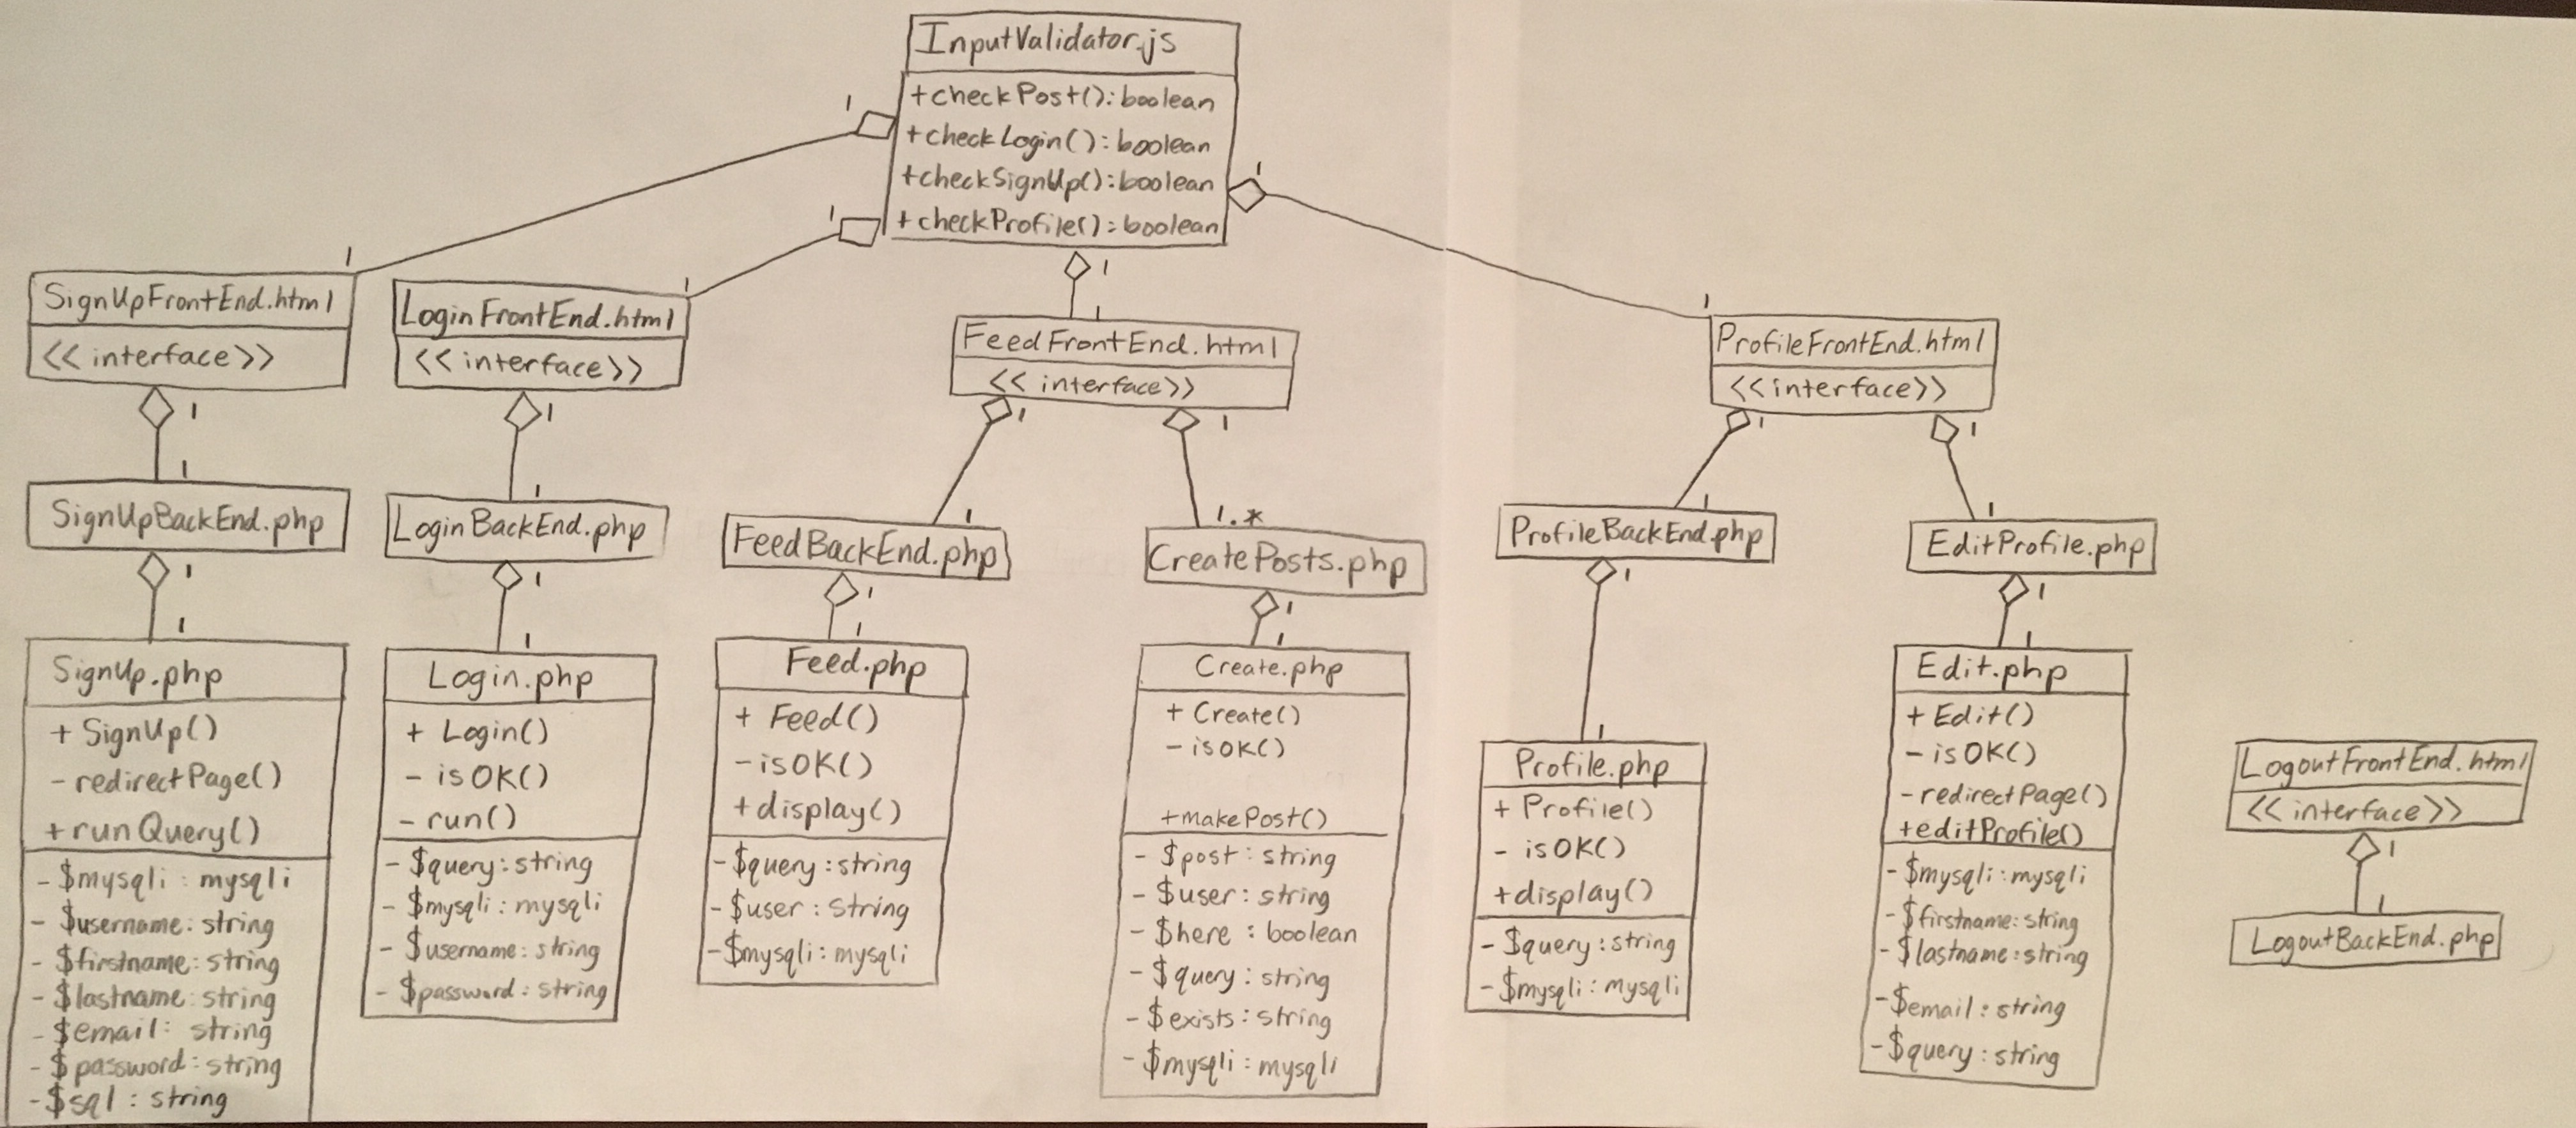 InputValidator.js
+checkPost():boolean
+checkLogin():boolean
+checkSignUp():boolean
+checkProfile():boolean
1
1
1
1
1
1
1
1
SignUpFrontEnd.html
<<interface>>
1
1
SignUpBackEnd.php
1
1
SignUp.php
+ SignUp()
- redirectPage()
+runQuery()
- $mysqli : mysqli
- $username: string
- $firstname: string
- $lastname: string
- $email: string
- $password: string
- $sql : string
LoginFrontEnd.html
<<interface>>
1
1
LoginBackEnd.php
1
1
Login.php
+ Login()
- isOK()
- run()
- $query: string
- $mysqli : mysqli
- $username: string
- $password: string
FeedFrontEnd.html
<<interface>>
1
1
1
1.*
FeedBackEnd.php
1
1
Feed.php
+ Feed()
- isOK()
+display()
- $query: string
- $user : string
- $mysqli: mysqli
CreatePosts.php
1
1
Create.php
+ Create()
- isOK()
+makePost()
- $post: string
- $user: string
- $here : boolean
- $query: string
- $exists: string
- $mysqli: mysqli
ProfileFrontEnd.html
<<interface>>
1
1
1
1
ProfileBackEnd.php
1
1
Profile.php
+ Profile()
- isOK()
+display()
- $query: string
- $mysqli: mysqli
EditProfile.php
1
1
Edit.php
+ Edit()
- isOK()
- redirectPage()
+editProfile()
- $mysqli: mysqli
- $firstname: string
- $lastname: string
- $email: string
- $query: string
LogoutFrontEnd.html
<<interface>>
1
1
LogoutBackEnd.php